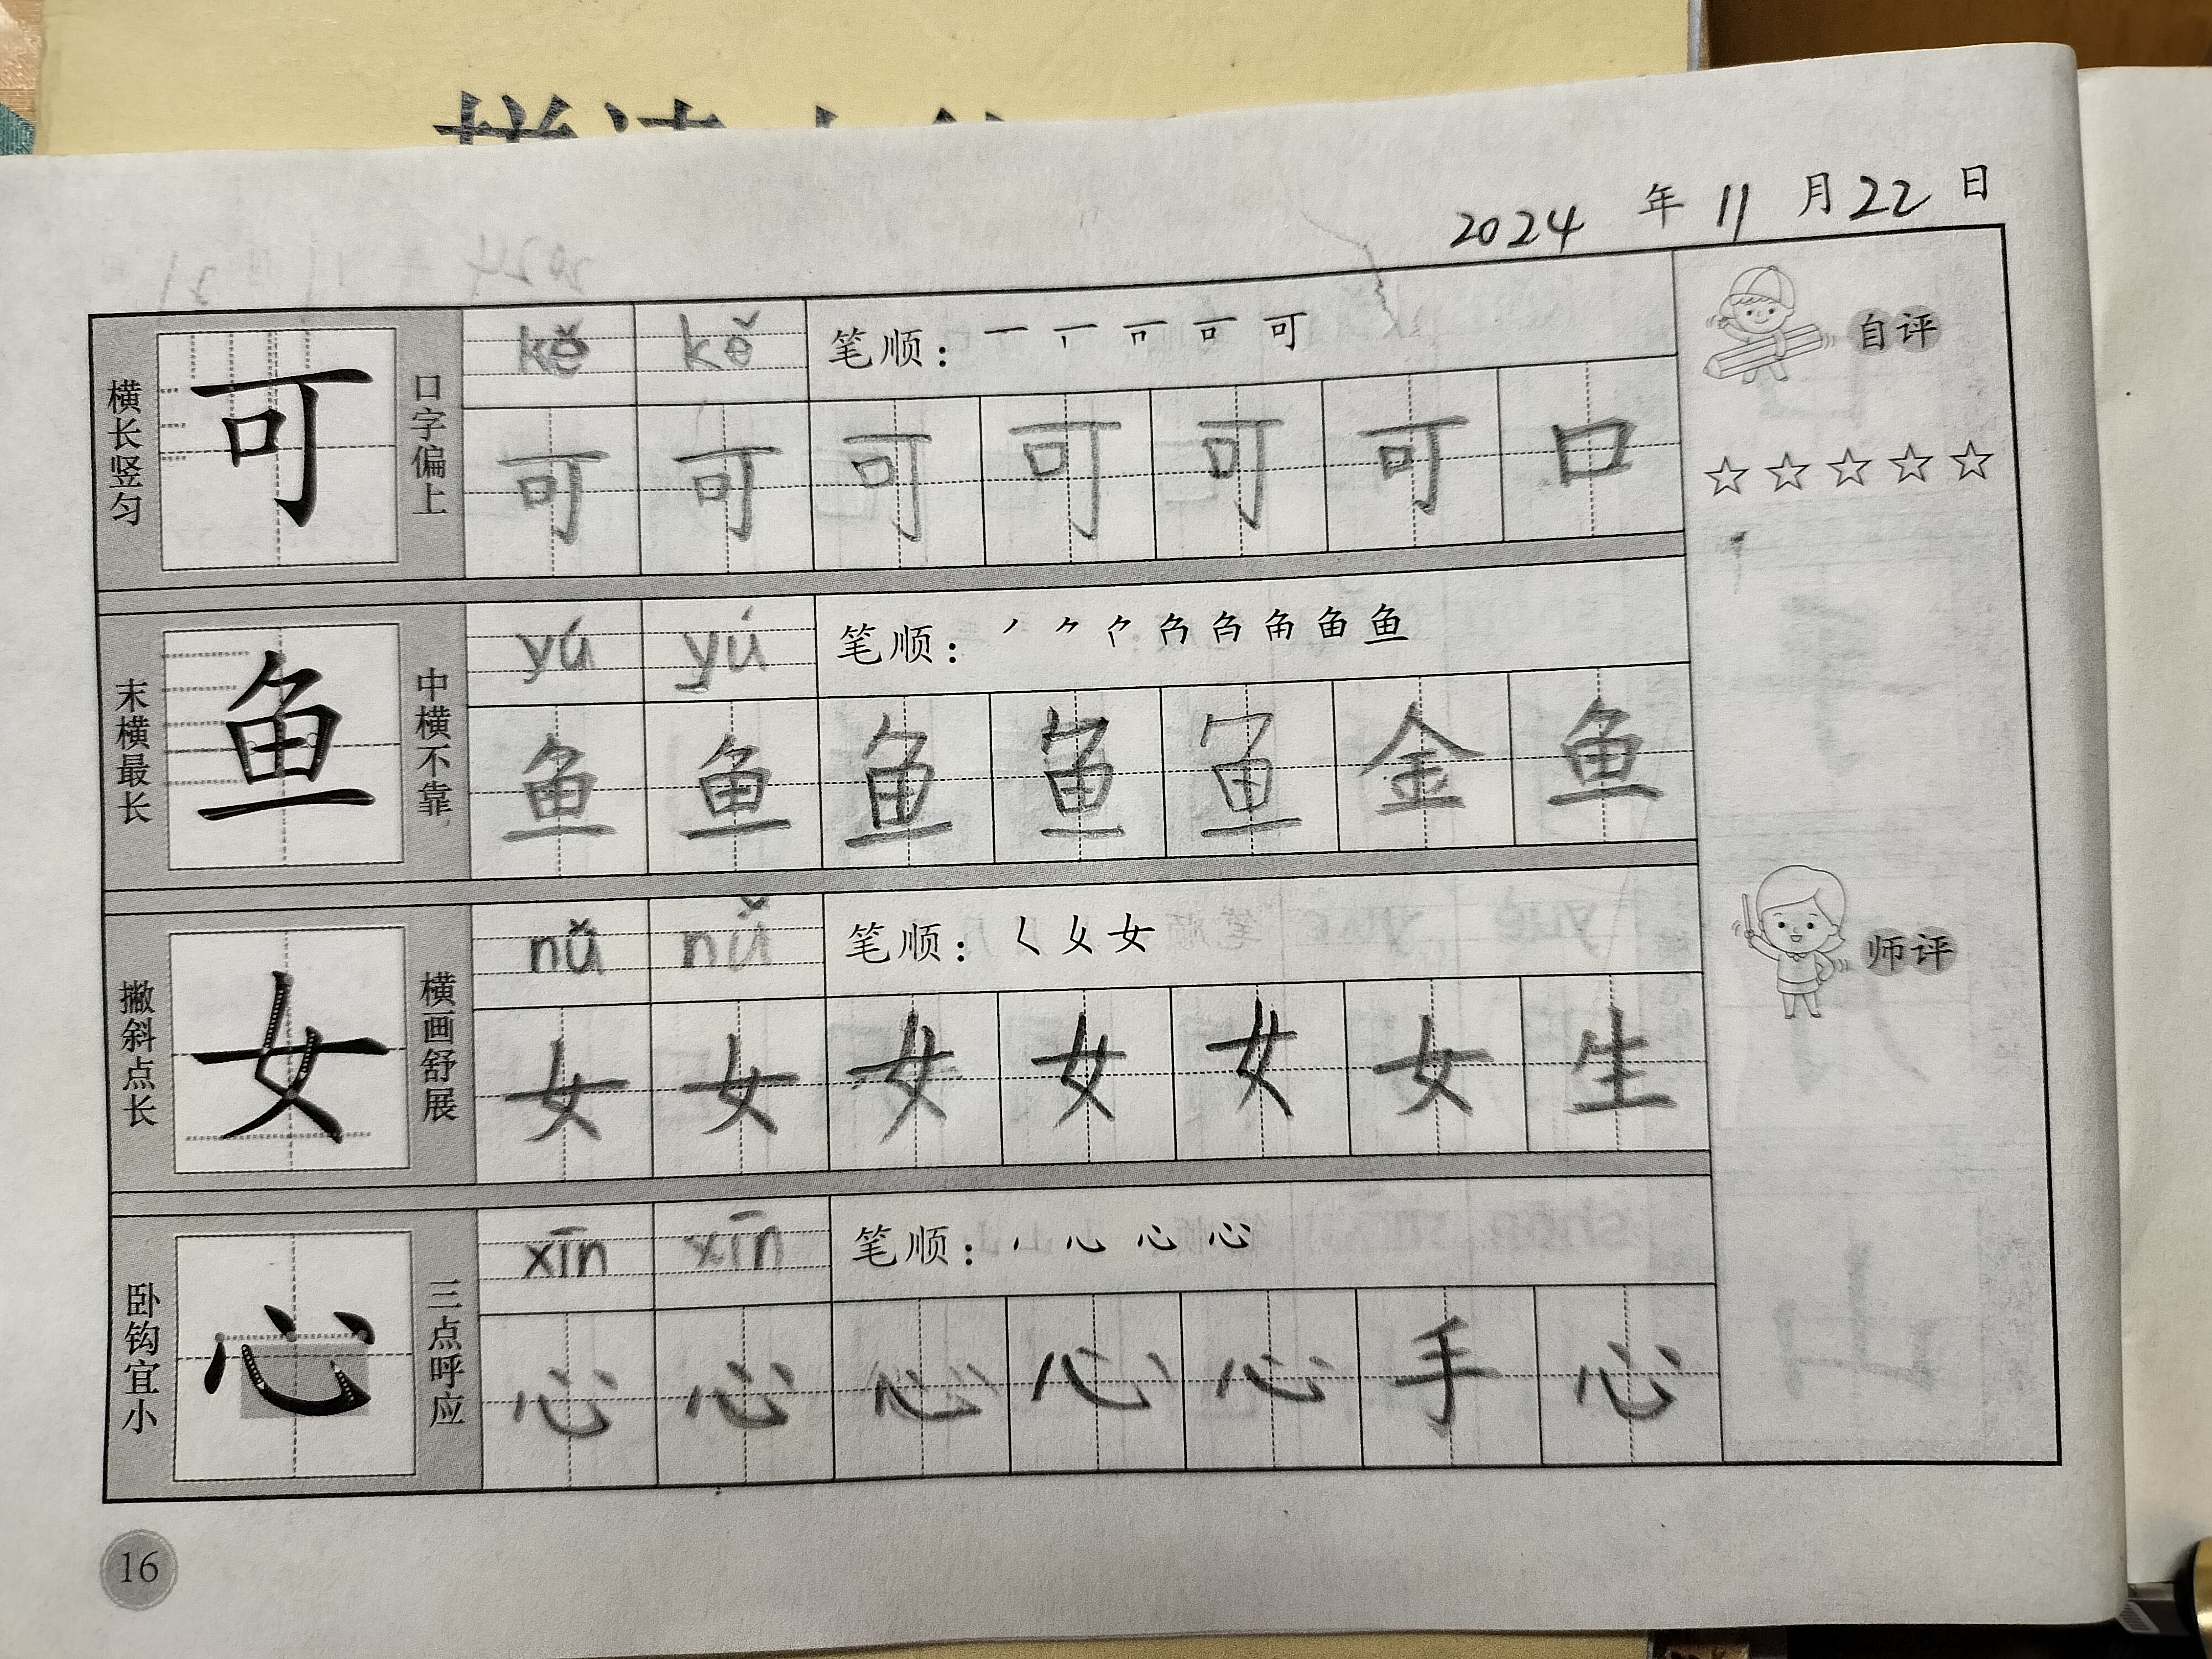 2024 年 11 月 22 日
横长竖匀
可
口字偏上
kě kě
笔顺：一 丅 可
可 可 可 可 可 可 口
末横最长
鱼
中横不靠
yú yú
笔顺：鱼
鱼 鱼 鱼 鱼 鱼 金 鱼
撇斜点长
女
横画舒展
nǚ nǚ
笔顺：女
女 女 女 女 女 女 生
卧钩宜小
心
三点呼应
xīn xīn
笔顺：心
心 心 心 心 心 手 心
自评
☆☆☆☆☆
师评
16